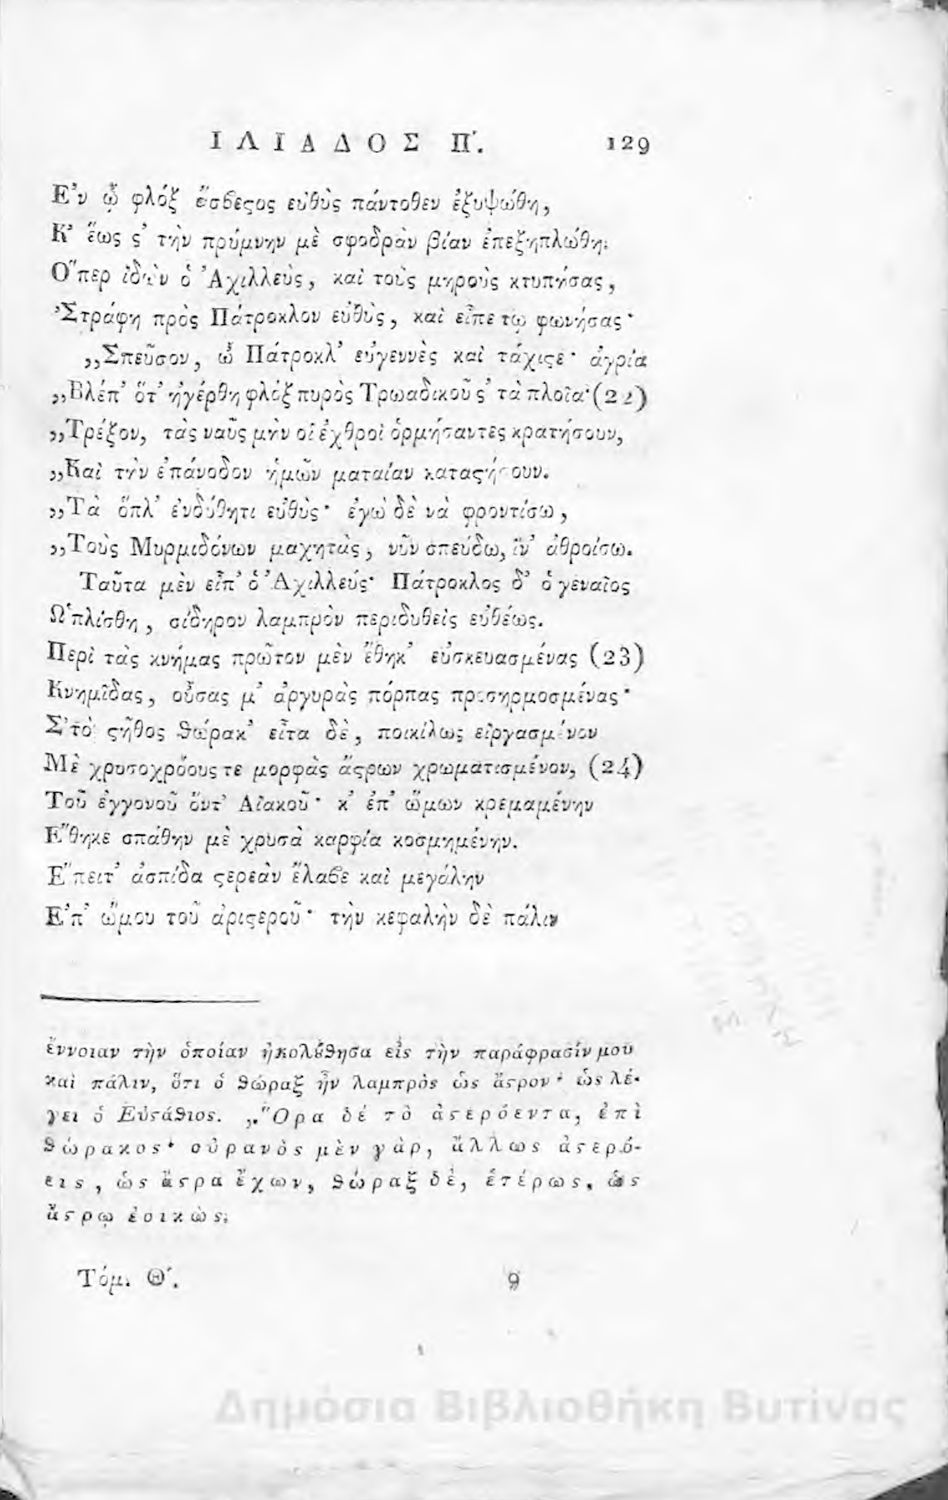 ΙΛΙΑΔΟΣ Π'. 129
Ἐν ᾧ φλόξ ἄσβεςος εὐθὺς πάντοθεν ἐξυψώθη,
Κ' ἕως ς' τὴν πρύμνην μὲ σφοδρὰν βίαν ἐπεξηπλώθη.
Ὅπερ ἰδὼν ὁ Ἀχιλλεὺς, καὶ τοὺς μηροὺς κτυπήσας,
Ἐτράφη πρὸς Πάτροκλον εὐθὺς, καὶ εἶπε τῳ φωνήσας·
„Σπεῦσον, ὦ Πάτροκλ' εὐγεννὲς καὶ τάχιςε· ἀγρία
„Βλέπ' ὅτ' ἠγέρθη φλὸξ πυρὸς Τρωαδικοῦ ς' τὰ πλοῖα·(22)
„Τρέξον, τὰς ναῦς μὴν οἱ ἐχθροὶ ὁρμήσαντες κρατήσουν,
„Καὶ τὴν ἐπάνοδον ἡμῶν ματαίαν καταςήσουν.
„Τὰ ὅπλ' ἐνδύθητι εὐθὺς· ἐγὼ δὲ νὰ φροντίσω,
„Τοὺς Μυρμιδόνων μαχητὰς, νῦν σπεύδω, ἵν' ἀθροίσω.
Ταῦτα μὲν εἶπ' ὁ Ἀχιλλεύς· Πάτροκλος δ' ὁ γεναῖος
Ὡπλίσθη, σίδηρον λαμπρὸν περιδυθεὶς εὐθέως.
Περὶ τὰς κνήμας πρῶτον μὲν ἔθηκ' εὐσκευασμένας (23)
Κνημῖδας, οὖσας μ' ἀργυρὰς πόρπας προσηρμοσμένας·
Σ'τὸ ςῆθος θώρακ' εἶτα δὲ, ποικίλως εἰργασμένον
Μὲ χρυσοχρόους τε μορφὰς ἄςρων χρωματισμένον, (24)
Τοῦ ἐγγονοῦ ὄντ' Αἰακοῦ· κ' ἐπ' ὤμων κρεμαμένην
Ἔθηκε σπάθην μὲ χρυσὰ καρφία κοσμημένην.
Ἔπειτ' ἀσπίδα ςερεὰν ἔλαβε καὶ μεγάλην
Ἐπ' ὤμου τοῦ ἀριςεροῦ· τὴν κεφαλὴν δὲ πάλιν
ἔννοιαν τὴν ὁποίαν ἠκολȣ́θησα εἰς τὴν παράφρασίν μου
καὶ πάλιν, ὅτι ὁ θώραξ ἦν λαμπρὸς ὡς ἄςρον· ὡς λέ-
γει ὁ Εὐςάθιος. „Ὅρα δὲ τὸ ἀςερόεντα, ἐπὶ
θώρακος· οὐρανὸς μὲν γὰρ, ἄλλως ἀςερό-
εις, ὡς ἄςρα ἔχων, θώραξ δὲ, ἑτέρως, ὡς
ἄςρῳ ἐοικὼς.
Τόμ. Θ'. 9
Δημόσια Βιβλιοθήκη Βυτίνας